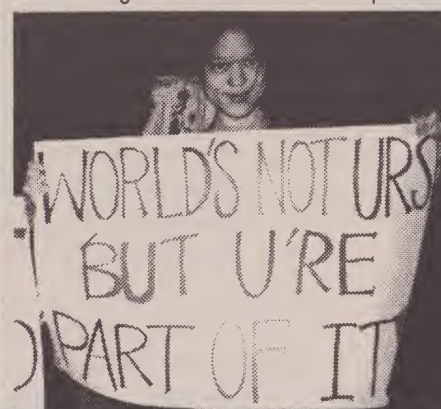 WORLD'S NOT URS
BUT U'RE
PART OF IT